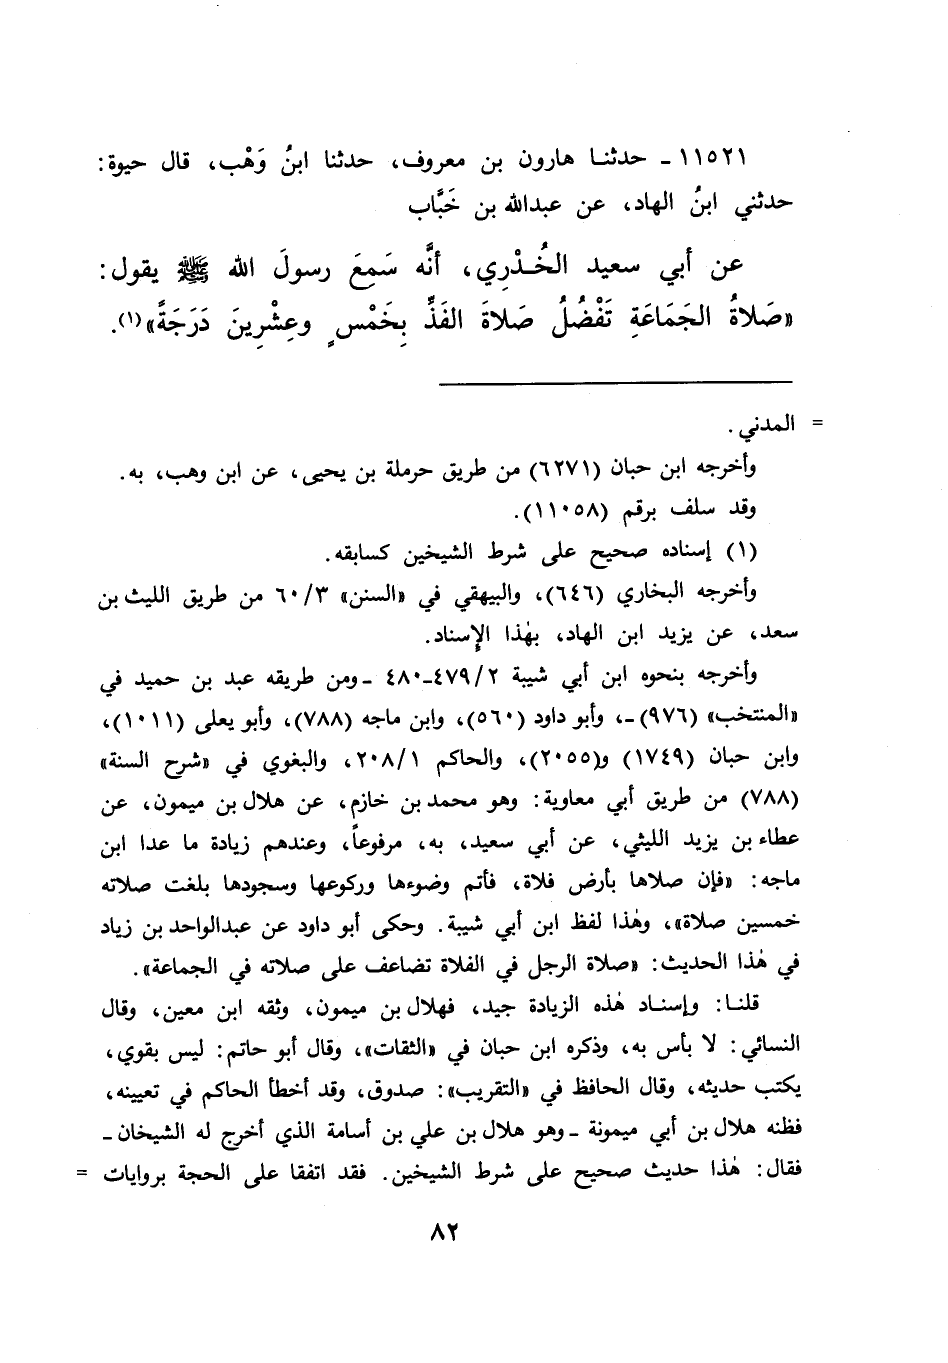 ١١٥٢١ ـ حدثنا هارون بن معروف، حدثنا ابنُ وَهْب، قال حيوة:
حدثني ابنُ الهاد، عن عبدالله بن خَبَّاب
عن أبي سعيد الخُدْرِي، أنَّه سَمِعَ رسولَ الله ﷺ يقول:
«صَلاةُ الجَمَاعَةِ تَفْضُلُ صَلاةَ الفَذِّ بِخَمْسٍ وعِشْرِينَ دَرَجَةً»(١).
= المدني.
وأخرجه ابن حبان (٦٢٧١) من طريق حرملة بن يحيى، عن ابن وهب، به.
وقد سلف برقم (١١٠٥٨).
(١) إسناده صحيح على شرط الشيخين كسابقه.
وأخرجه البخاري (٦٤٦)، والبيهقي في «السنن» ٦٠/٣ من طريق الليث بن
سعد، عن يزيد ابن الهاد، بهٰذا الإسناد.
وأخرجه بنحوه ابن أبي شيبة ٤٧٩/٢ـ٤٨٠ ـ ومن طريقه عبد بن حميد في
«المنتخب» (٩٧٦) ـ، وأبو داود (٥٦٠)، وابن ماجه (٧٨٨)، وأبو يعلى (١٠١١)،
وابن حبان (١٧٤٩) و(٢٠٥٥)، والحاكم ٢٠٨/١، والبغوي في «شرح السنة»
(٧٨٨) من طريق أبي معاوية: وهو محمد بن خازم، عن هلال بن ميمون، عن
عطاء بن يزيد الليثي، عن أبي سعيد، به، مرفوعاً، وعندهم زيادة ما عدا ابن
ماجه: «فإن صلاها بأرض فلاة، فأتم وضوءها وركوعها وسجودها بلغت صلاته
خمسين صلاة»، وهٰذا لفظ ابن أبي شيبة. وحكى أبو داود عن عبدالواحد بن زياد
في هٰذا الحديث: «صلاة الرجل في الفلاة تضاعف على صلاته في الجماعة».
قلنا: وإسناد هٰذه الزيادة جيد، فهلال بن ميمون، وثقه ابن معين، وقال
النسائي: لا بأس به، وذكره ابن حبان في «الثقات»، وقال أبو حاتم: ليس بقوي،
يكتب حديثه، وقال الحافظ في «التقريب»: صدوق، وقد أخطأ الحاكم في تعيينه،
فظنه هلال بن أبي ميمونة ـ وهو هلال بن علي بن أسامة الذي أخرج له الشيخان ـ
فقال: هٰذا حديث صحيح على شرط الشيخين. فقد اتفقا على الحجة بروايات =
٨٢